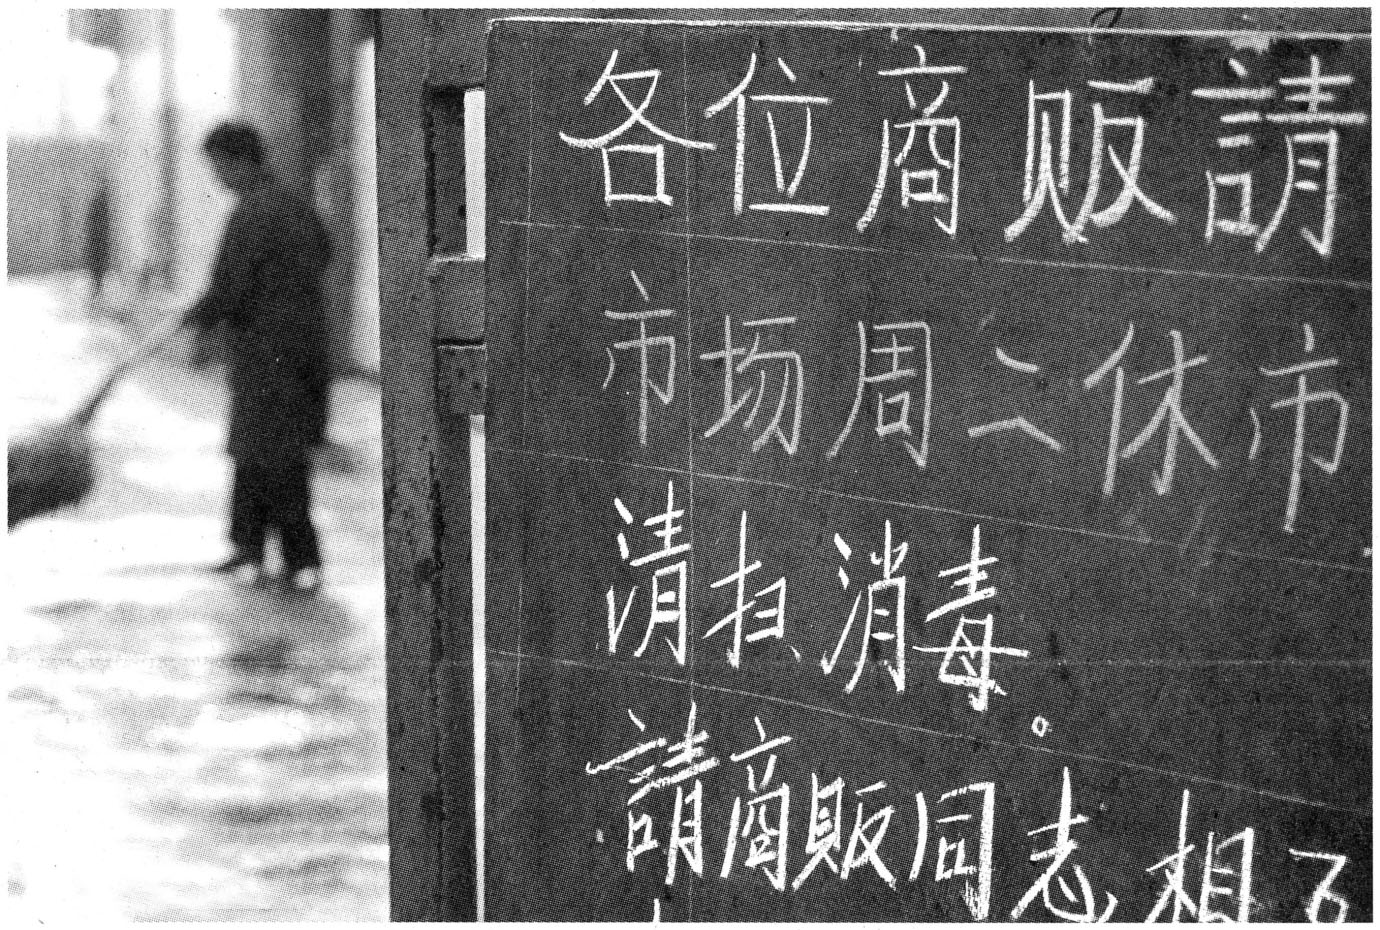 各位商贩請
市场周二休市
清扫消毒。
請商贩同志相